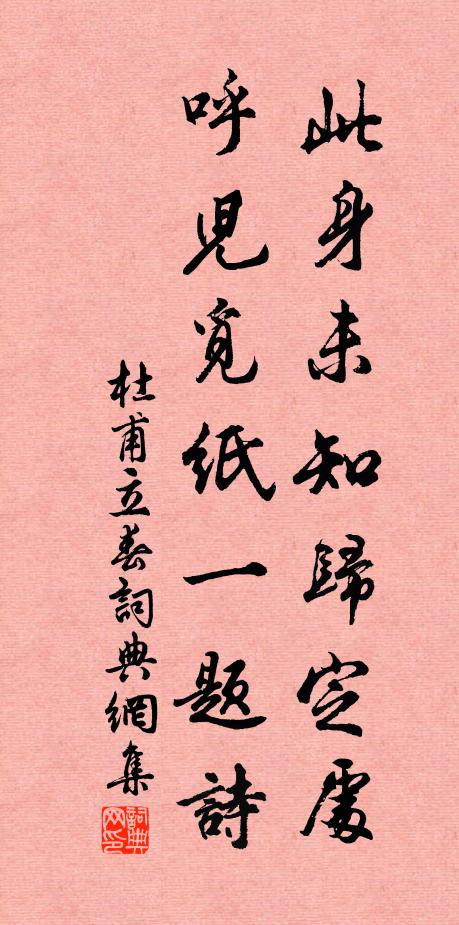 此身未知歸定處
呼兒覓紙一題詩
杜甫立春詞典網集
詞典
网印